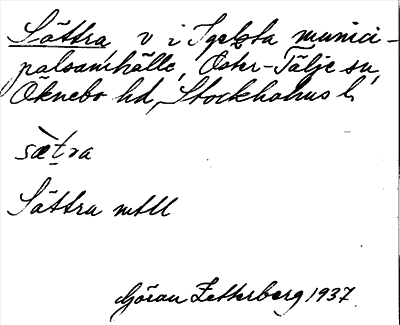 Sättra, v i Igelsta munici-
palsamhälle, Öster-Tälje sn,
Öknebo hd, Stockholms l.
sæ̀tra
Sättra mtll
Göran Zetterberg 1937